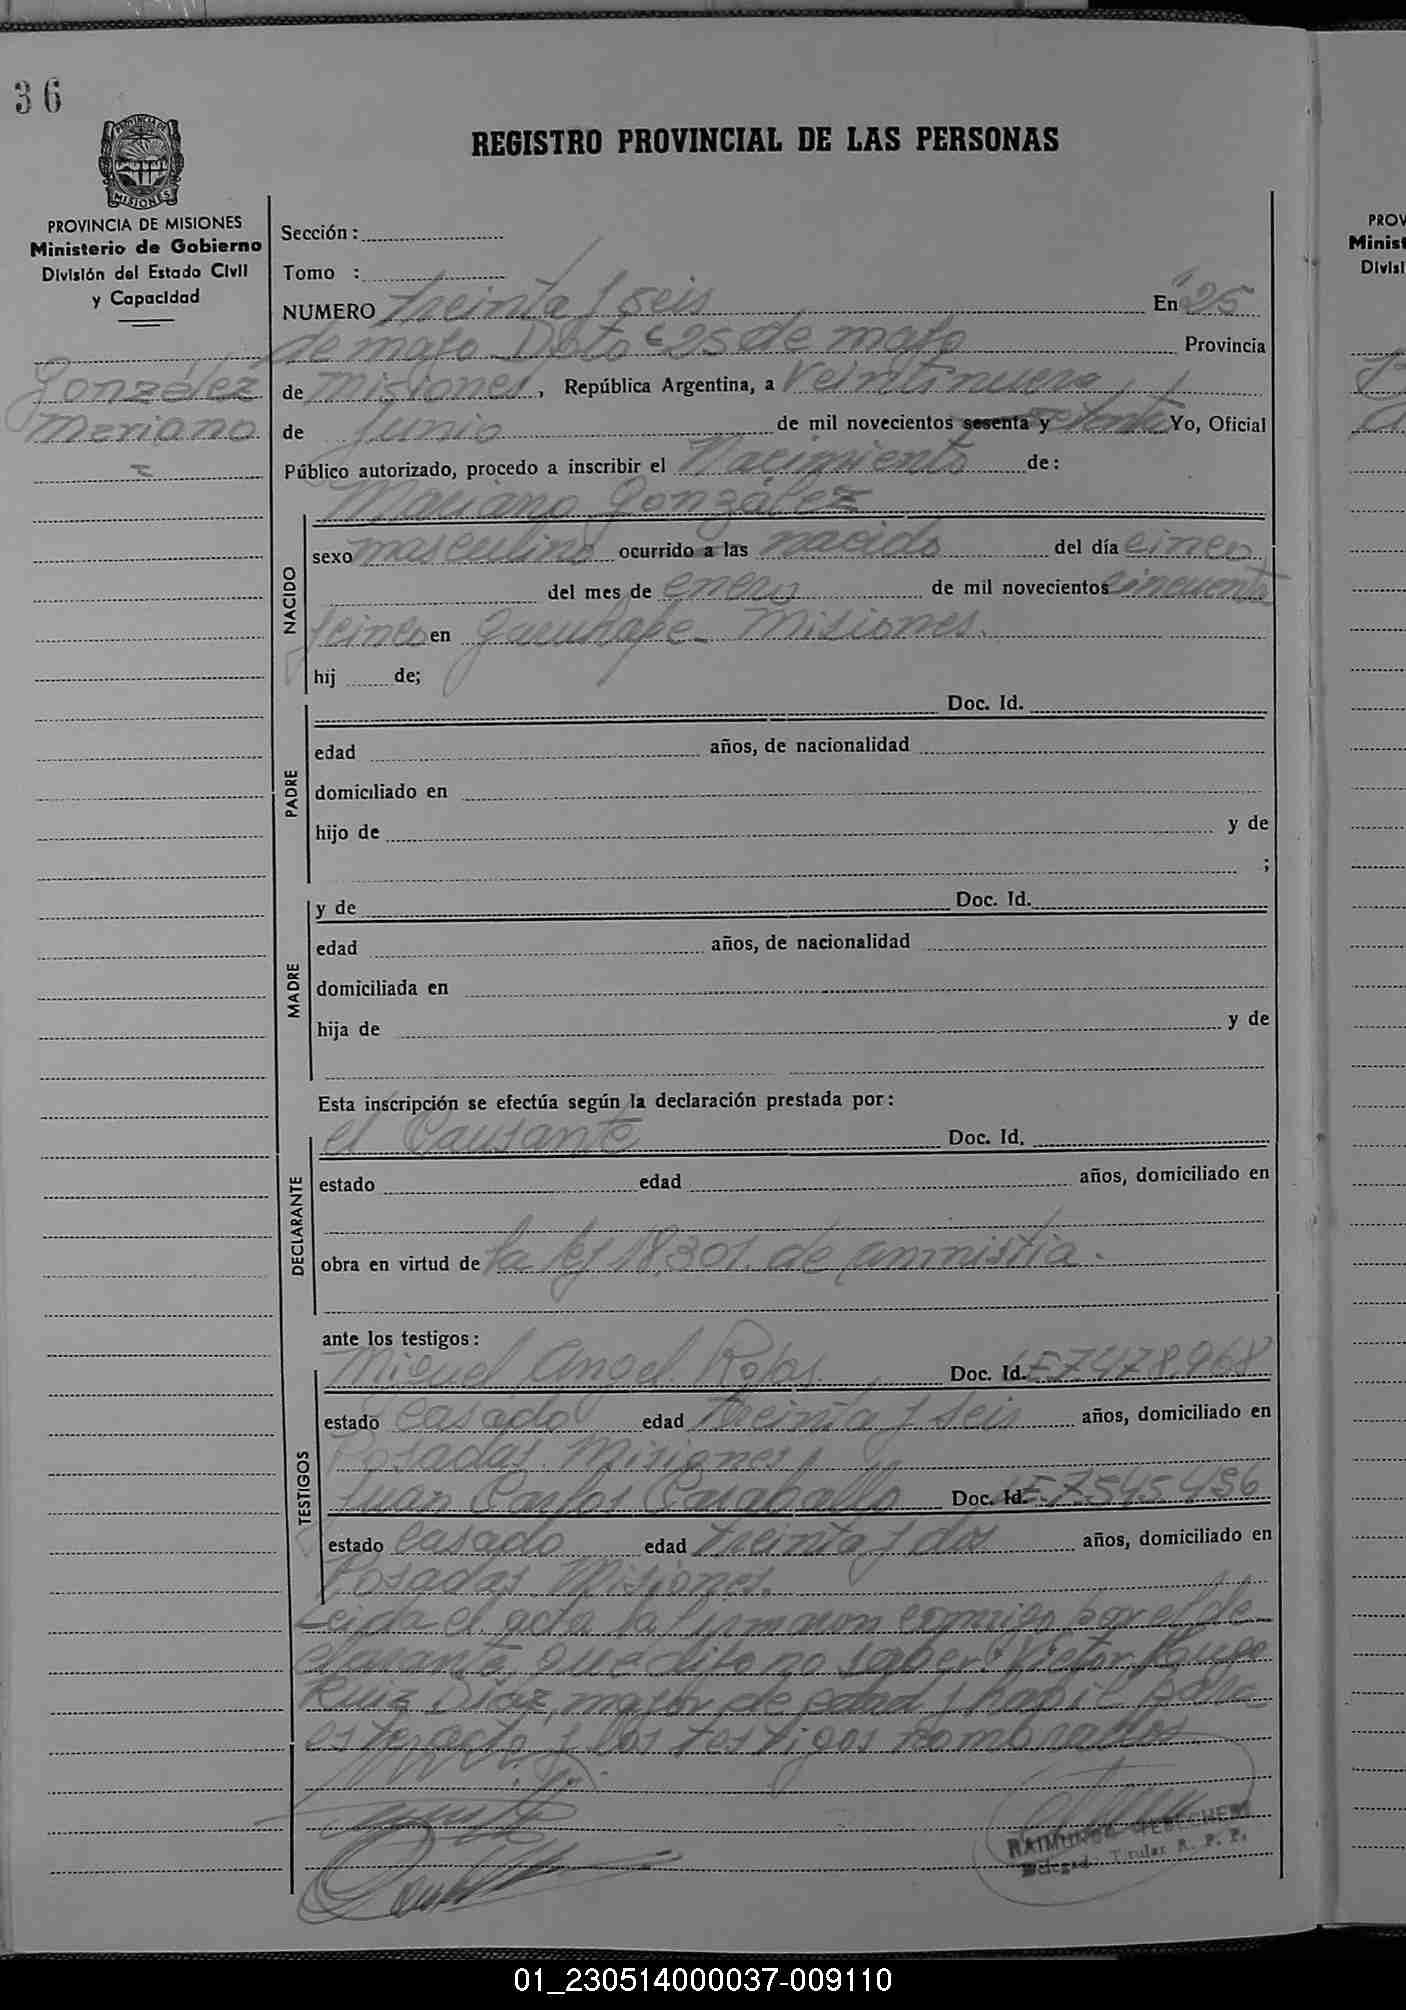 36
REGISTRO PROVINCIAL DE LAS PERSONAS
PROVINCIA DE MISIONES
Ministerio de Gobierno
División del Estado Civil
y Capacidad
González
Mariano
Sección:
Tomo :
NUMERO treinta y seis En 25
de mayo Dpto 25 de mayo Provincia
de Misiones, República Argentina, a Veintinueve
de Junio de mil novecientos sesenta y setenta Yo, Oficial
Público autorizado, procedo a inscribir el Nacimiento de:
Mariano González
NACIDO
sexo masculino ocurrido a las nacido del día cinco
del mes de enero de mil novecientos cincuenta
y cinco en Misiones.
hij de;
PADRE
Doc. Id.
edad años, de nacionalidad
domiciliado en
hijo de y de
;
MADRE
y de Doc. Id.
edad años, de nacionalidad
domiciliada en
hija de y de
Esta inscripción se efectúa según la declaración prestada por:
DECLARANTE
el Causante Doc. Id.
estado edad años, domiciliado en
obra en virtud de la ley 18.301. de amnistia.
ante los testigos:
TESTIGOS
Miguel Angel Rojas Doc. Id. LE7478968
estado casado edad treinta y seis años, domiciliado en
Posadas Misiones
Juan Carlos Caraballo Doc. Id. LE7545456
estado casado edad treinta y dos años, domiciliado en
Posadas Misiones.
Leida el acta la firmaron conmigo por el de-
clarante que dijo no saber: Victor Hugo
Ruiz Diaz, mayor de edad y habil para
este acto y los testigos nombrados
RAIMUNDO
Delegado Titular R. P. P.
PROV
Minist
Divisi
01_230514000037-009110